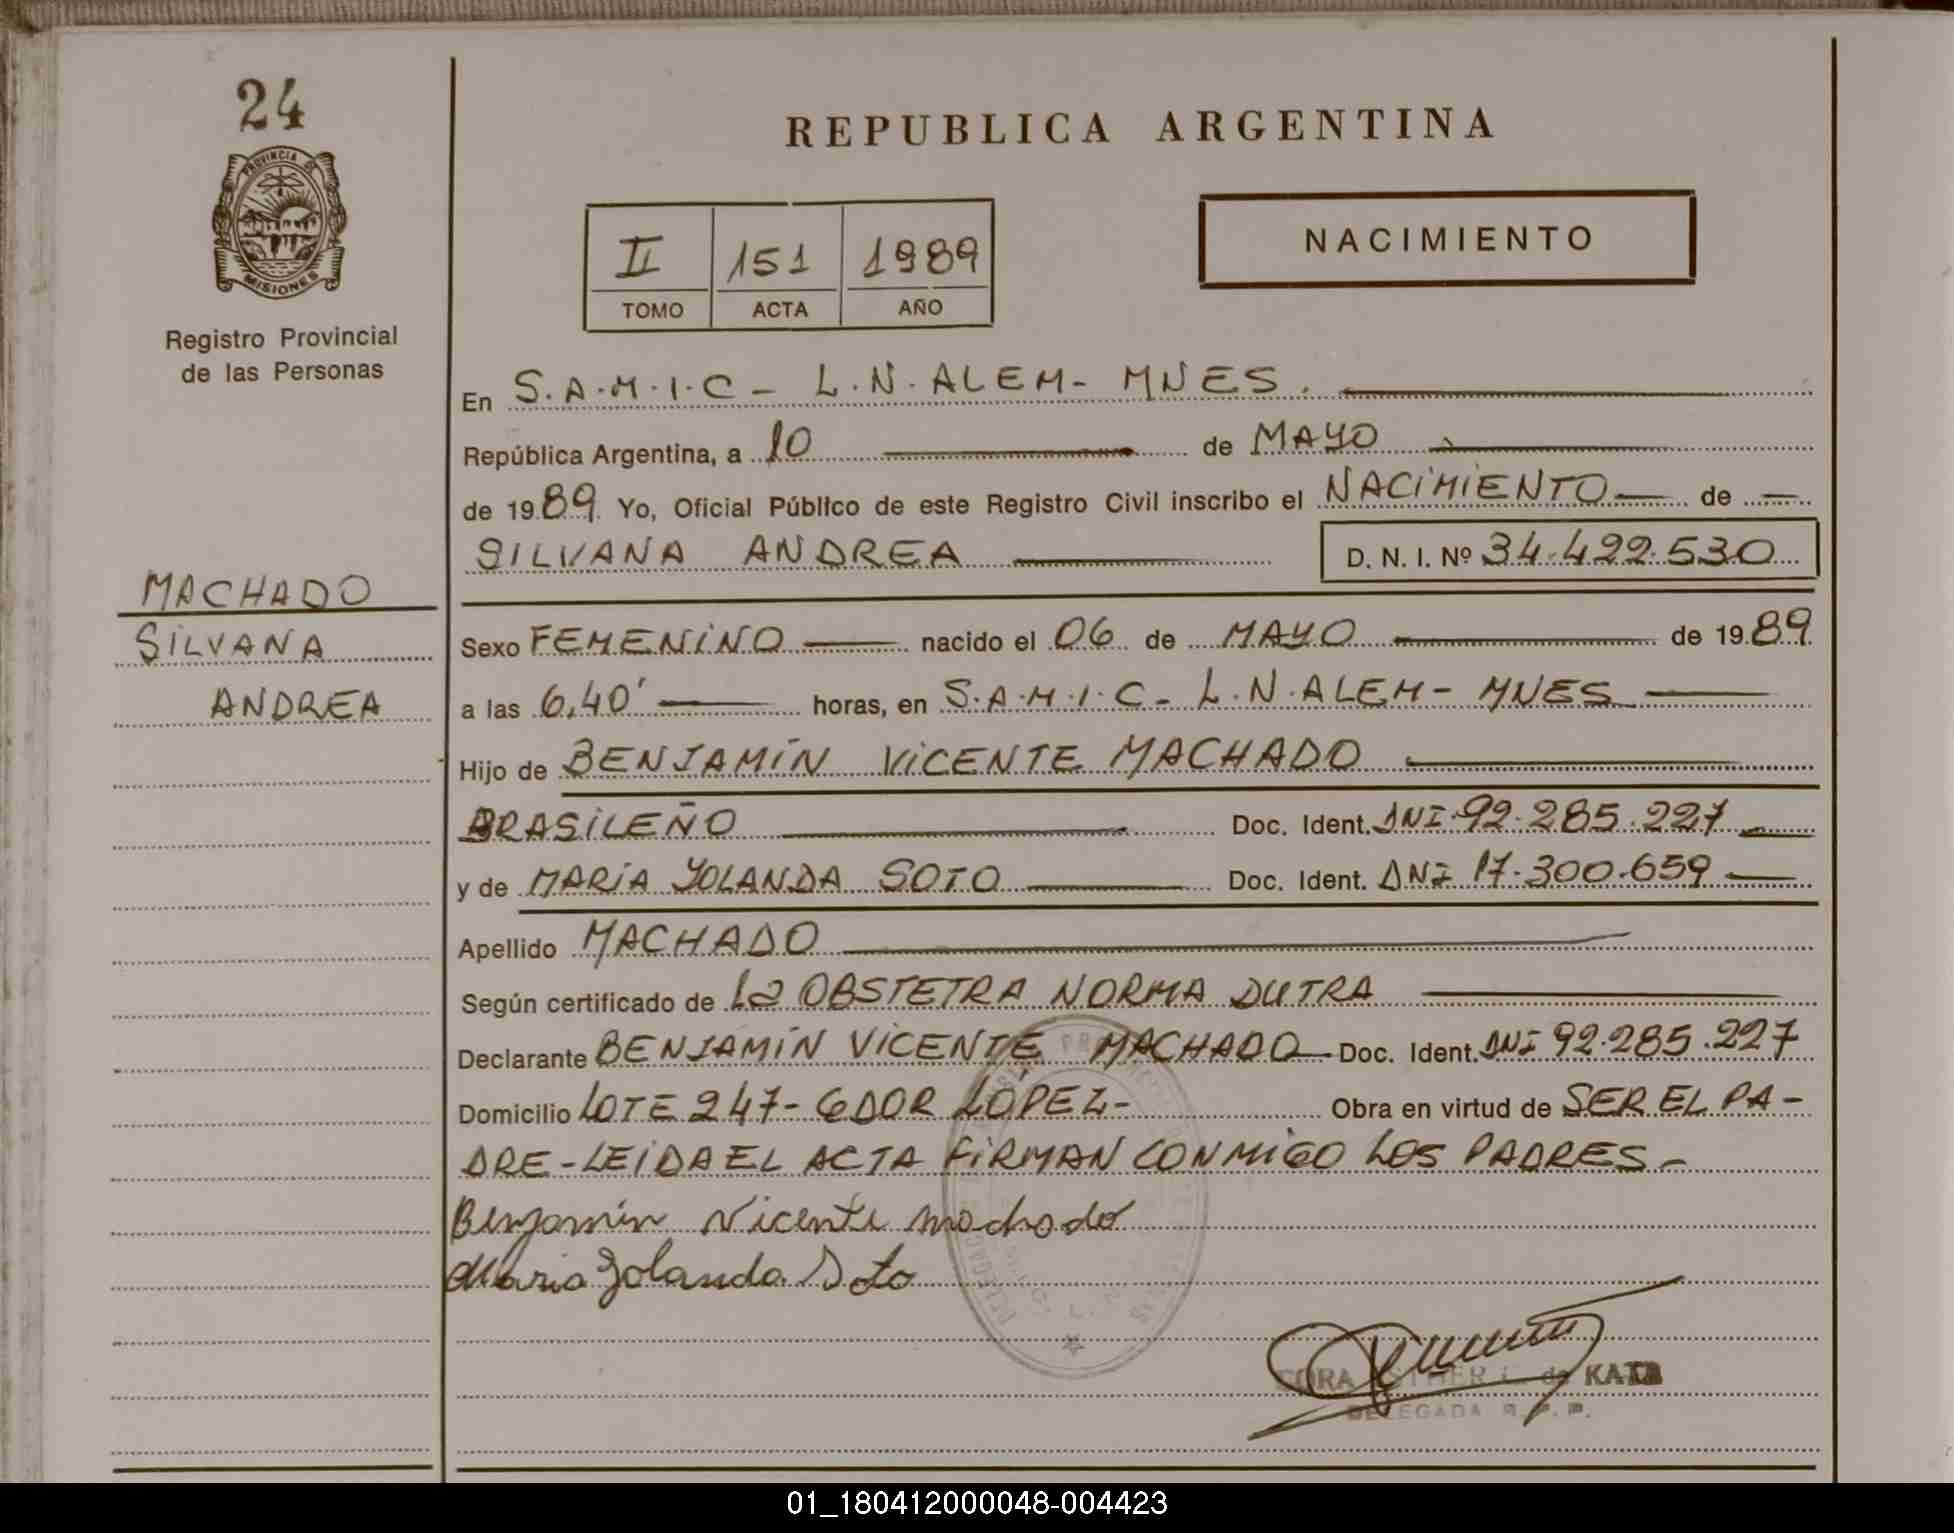 24
PROVINCIA DE
MISIONES
Registro Provincial
de las Personas
MACHADO
SILVANA
ANDREA
REPUBLICA ARGENTINA
II 151 1989
TOMO ACTA AÑO
NACIMIENTO
En S.A.M.I.C - L.N.ALEM- MNES.
República Argentina, a 10 de MAYO
de 1989 Yo, Oficial Público de este Registro Civil inscribo el NACIMIENTO de
SILVANA ANDREA D. N. I. Nº 34.422.530
Sexo FEMENINO nacido el 06 de MAYO de 1989
a las 6,40' horas, en S.A.M.I.C- L.N.ALEM- MNES
Hijo de BENJAMÍN VICENTE MACHADO
BRASILEÑO Doc. Ident. DNI 92.285.227
y de MARÍA YOLANDA SOTO Doc. Ident. DNI 17.300.659
Apellido MACHADO
Según certificado de La OBSTETRA NORMA DUTRA
Declarante BENJAMÍN VICENTE MACHADO Doc. Ident. DNI 92.285.227
Domicilio LOTE 247- GDOR LÓPEZ- Obra en virtud de SER EL PA-
DRE-LEIDA EL ACTA FIRMAN CONMIGO LOS PADRES-
Benjamín Vicente Machado
Maria Yolanda Soto
DELEGADA R. P. P.
01_180412000048-004423